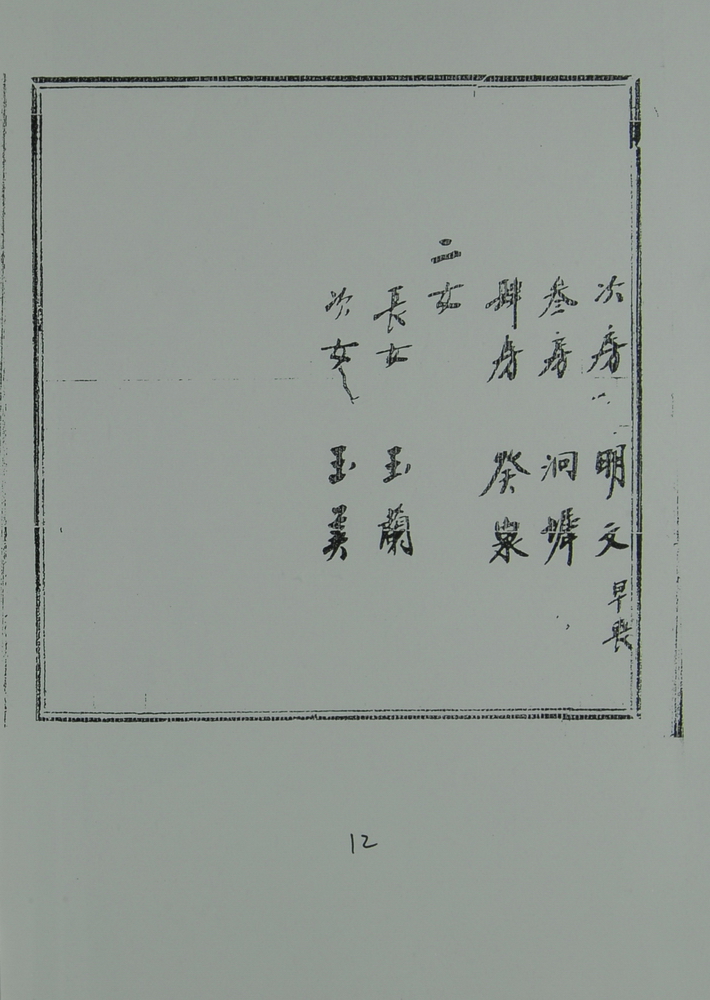 次房 明文 早喪
叁房 洞
肆房 癸
二女
長女 玉蘭
次女 玉
12